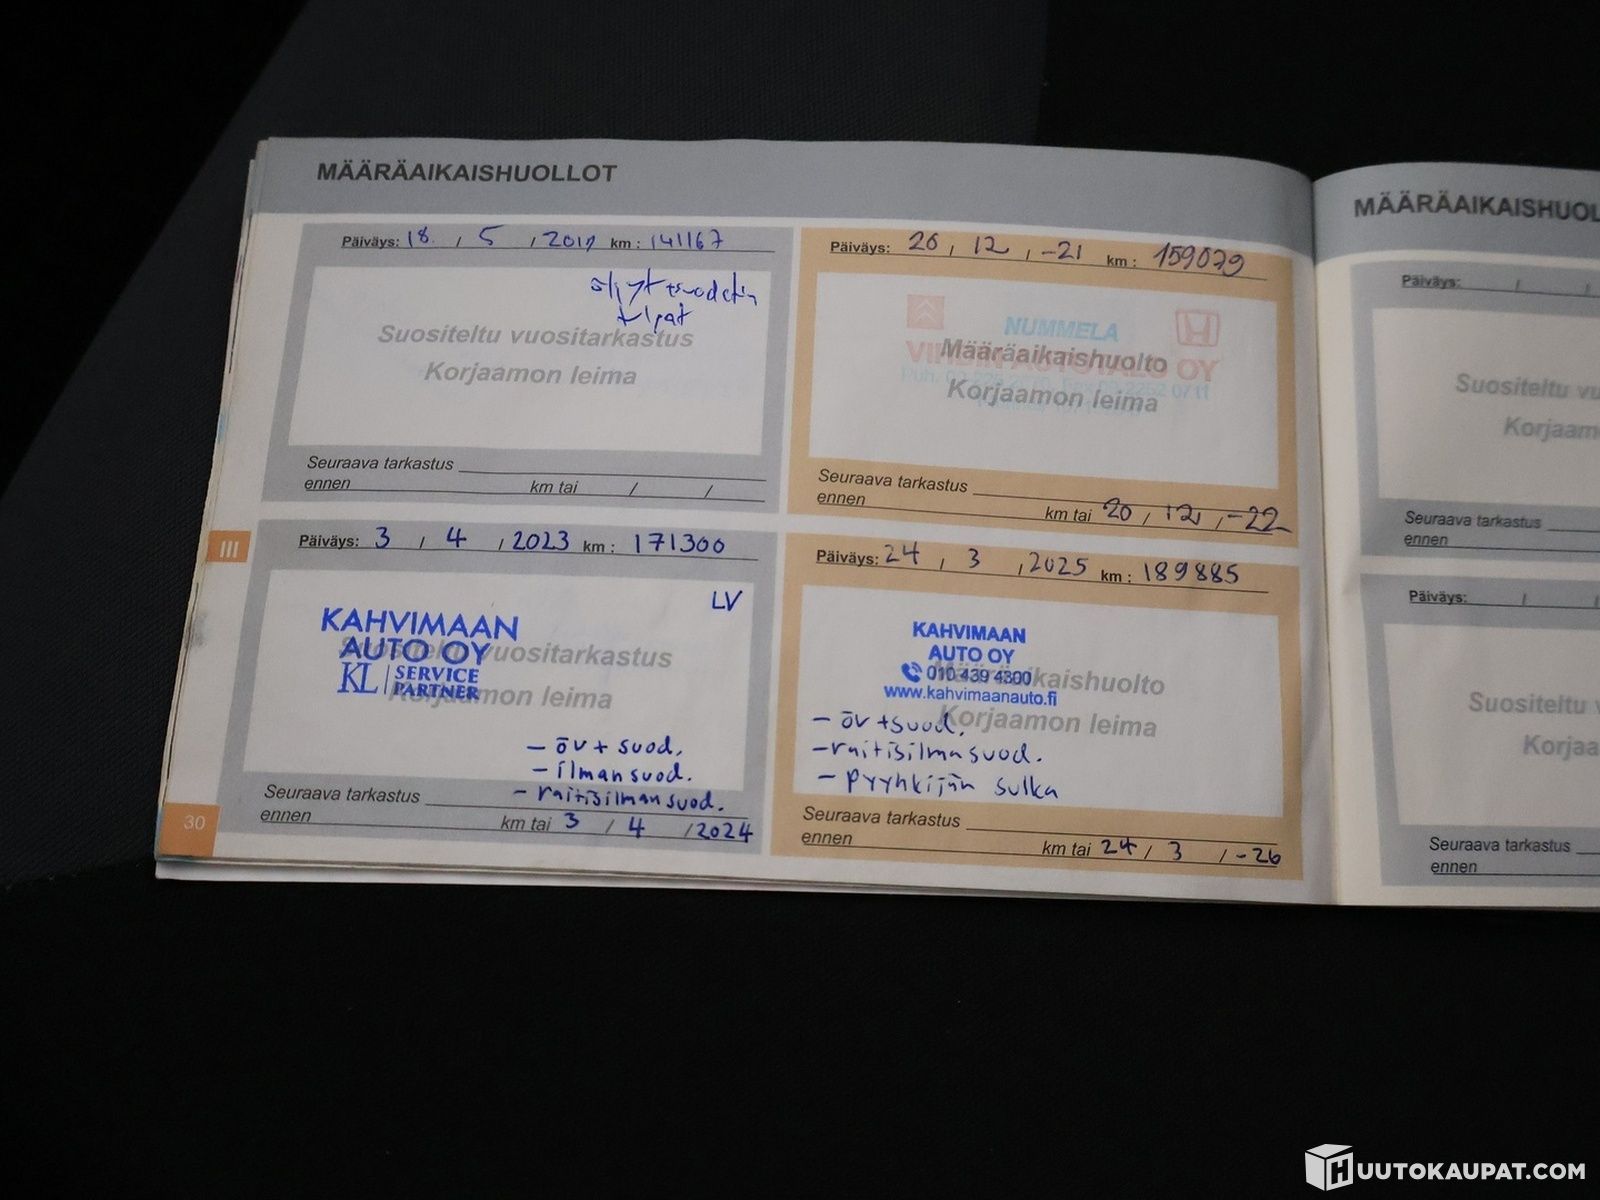 MÄÄRÄAIKAISHUOLLOT
Päiväys: 18. / 5 / 2019 km : 141167
Suositeltu vuositarkastus
Korjaamon leima
Seuraava tarkastus
ennen km tai / /
Päiväys: 20 / 12 / -21 km : 159079
NUMMELA
AUTOTALO OY
Määräaikaishuolto
Korjaamon leima
Seuraava tarkastus
ennen km tai 20 / 12 / -22
III
Päiväys: 3 / 4 / 2023 km : 171300
LV
KAHVIMAAN
AUTO OY
KL SERVICE
PARTNER
Suositeltu vuositarkastus
Korjaamon leima
- öv + suod.
- ilmansuod.
- raitisilmansuod.
Seuraava tarkastus
ennen km tai 3 / 4 / 2024
30
Päiväys: 24 / 3 / 2025 km : 189885
KAHVIMAAN
AUTO OY
010 439 4300
www.kahvimaanauto.fi
Määräaikaishuolto
Korjaamon leima
- öv + suod.
- raitisilmasuod.
- pyyhkijän sulka
Seuraava tarkastus
ennen km tai 24 / 3 / -26
MÄÄRÄAIKAISHUOL
Päiväys: / /
Suositeltu vu
Korjaam
Seuraava tarkastus
ennen
Päiväys: / /
Suositeltu v
Korjaa
Seuraava tarkastus
ennen
HUUTOKAUPAT.COM